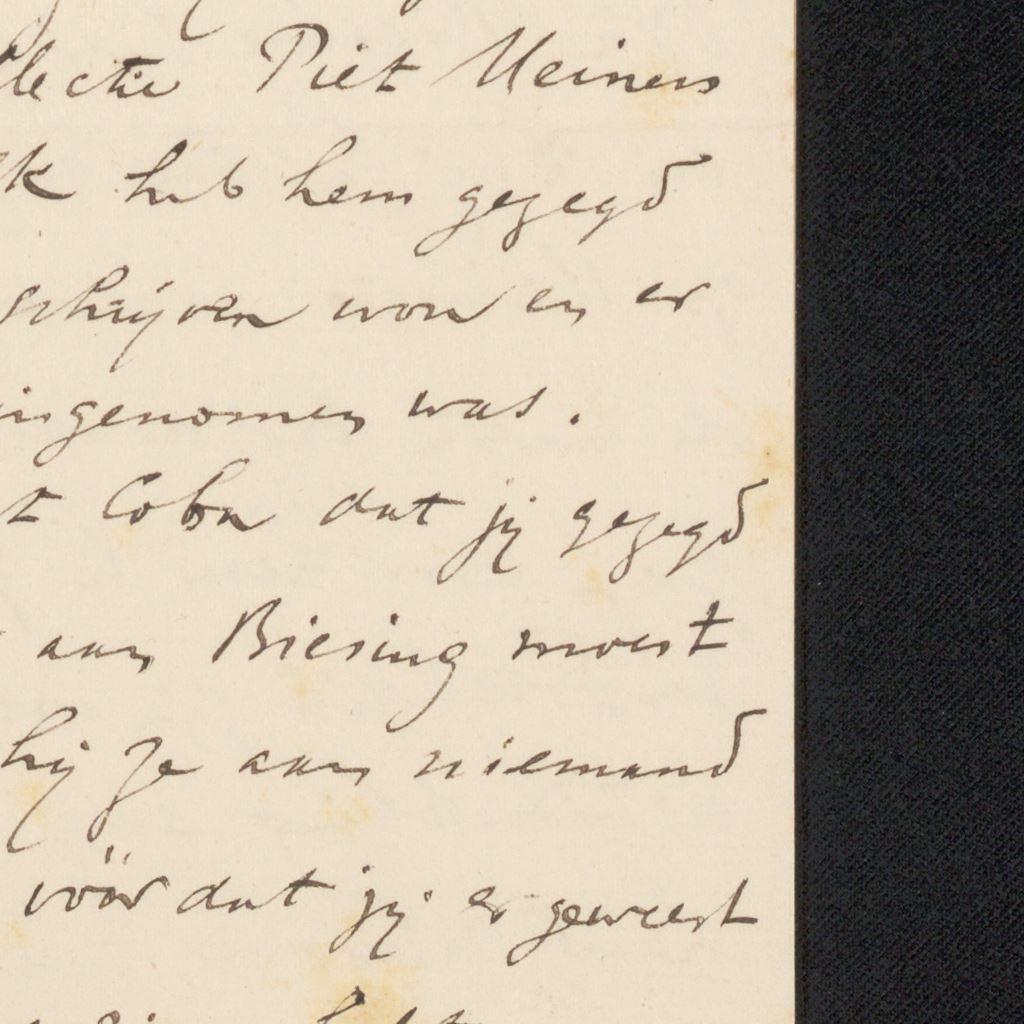 lectie Piet Meiners
Ik heb hem gezegd
schrijven wou en er
ingenomen was.
t Coba dat jij gezegd
aan Biesing moest
hij ze aan niemand
vóór dat jij er geweest